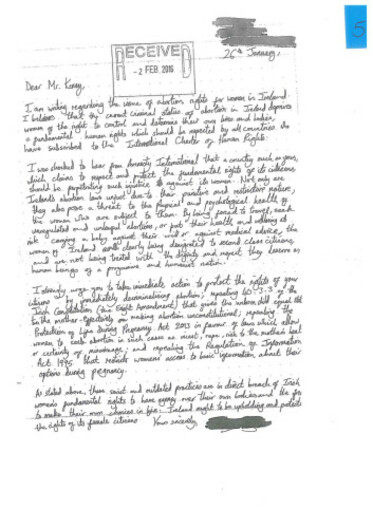 5
RECEIVED
- 2 FEB 2016
26th January,
Dear Mr. Kenny,
I am writing regarding the issue of abortion rights for women in Ireland.
I believe that the current criminal status of abortion in Ireland deprives
women of the right to control and determine their own lives and bodies,
a fundamental human rights which should be respected by all countries who
have subscribed to the International Charter of Human Rights.
I was shocked to hear from Amnesty International that a country such as yours,
which claims to respect and protect the fundamental rights of its citizens
should be perpetrating such injustice against its women. Not only are
Ireland's abortion laws unjust due to their punitive and restrictive nature,
they also pose a threat to the physical and psychological health of
the women who are subject to them. By being forced to travel, seek
unregulated and unlawful abortions, or put their health and wellbeing at
risk carrying a baby against their will or against medical advice, the
women of Ireland are clearly being designated to second class citizens,
and are not being treated with the dignity and respect they deserve as
human beings of a progressive and humanist nation.
I strongly urge you to take immediate action to protect the rights of your
citizens by immediately decriminalising abortion; repealing 40.3.3 of the
Irish Constitution (the Eight Amendment) that gives the unborn child equal
to the mother, effectively making abortion unconstitutional; repealing the
Protection of Life During Pregnancy Act 2013 in favour of laws which allow
women to seek abortion in such cases as incest, rape, risk to the mother's health
or certainty of miscarriage; and repealing the Regulation of Information
Act 1995 that restricts women's access to basic information about their
options during pregnancy.
As stated above, these sexist and outdated practices are in direct breach of Irish
women's fundamental rights to have agency over their own bodies and the
to make their own choices in life. Ireland ought to be upholding and
the rights of its female citizens Yours sincerely